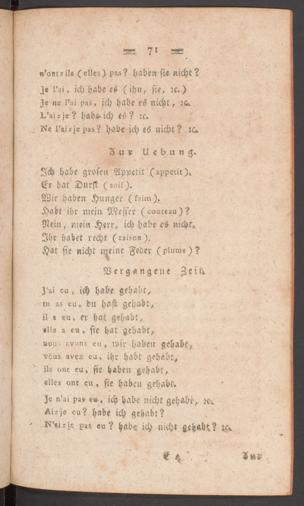 71
n'ont-ils (elles) pas? haben sie nicht?
Je l'ai, ich habe es (ihn, sie, ꝛc.)
Je ne l'ai pas, ich habe es nicht, ꝛc.
L'ai-je? habe ich es? ꝛc.
Ne l'ai-je pas? habe ich es nicht? ꝛc.
Zur Uebung.
Ich habe großen Appetit (appetit).
Er hat Durst (soif).
Wir haben Hunger (faim).
Habt ihr mein Messer (couteau)?
Nein, mein Herr, ich habe es nicht.
Ihr habet recht (raison).
Hat sie nicht meine Feder (plume)?
Vergangene Zeit.
J'ai eu, ich habe gehabt,
tu as eu, du hast gehabt,
il a eu, er hat gehabt,
elle a eu, sie hat gehabt,
nous avons eu, wir haben gehabt,
vous avez eu, ihr habt gehabt,
ils ont eu, sie haben gehabt,
elles ont eu, sie haben gehabt.
Je n'ai pas eu, ich habe nicht gehabt, ꝛc.
Ai-je eu? habe ich gehabt?
N'ai-je pas eu? habe ich nicht gehabt? ꝛc.
E 4 Zur